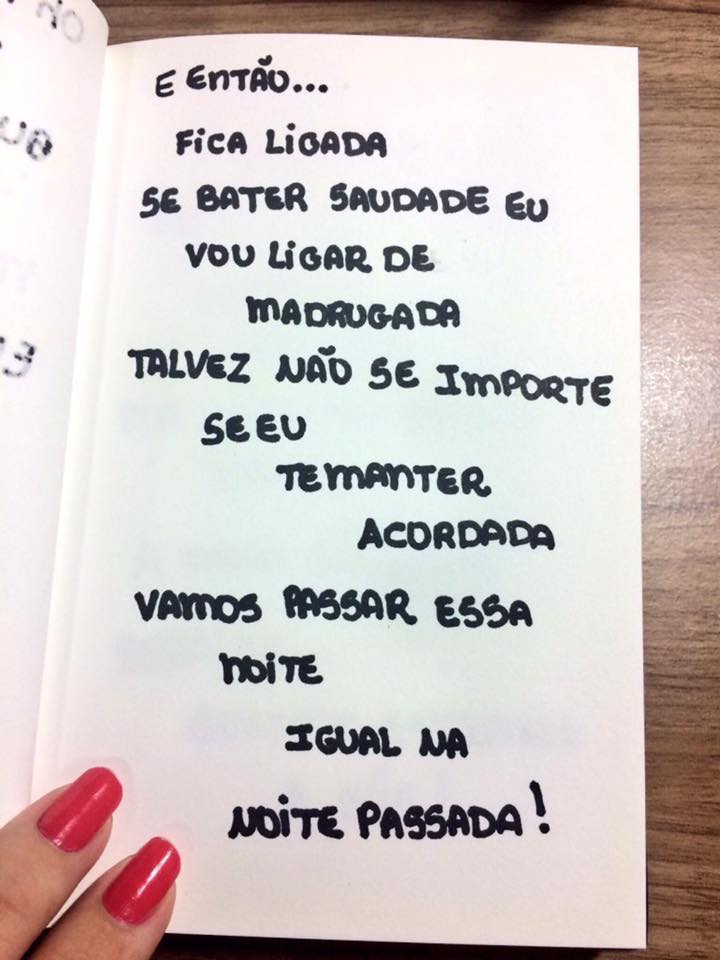 E ENTÃO...
FICA LIGADA
SE BATER SAUDADE EU
VOU LIGAR DE
MADRUGADA
TALVEZ NÃO SE IMPORTE
SE EU
TE MANTER
ACORDADA
VAMOS PASSAR ESSA
NOITE
IGUAL NA
NOITE PASSADA!